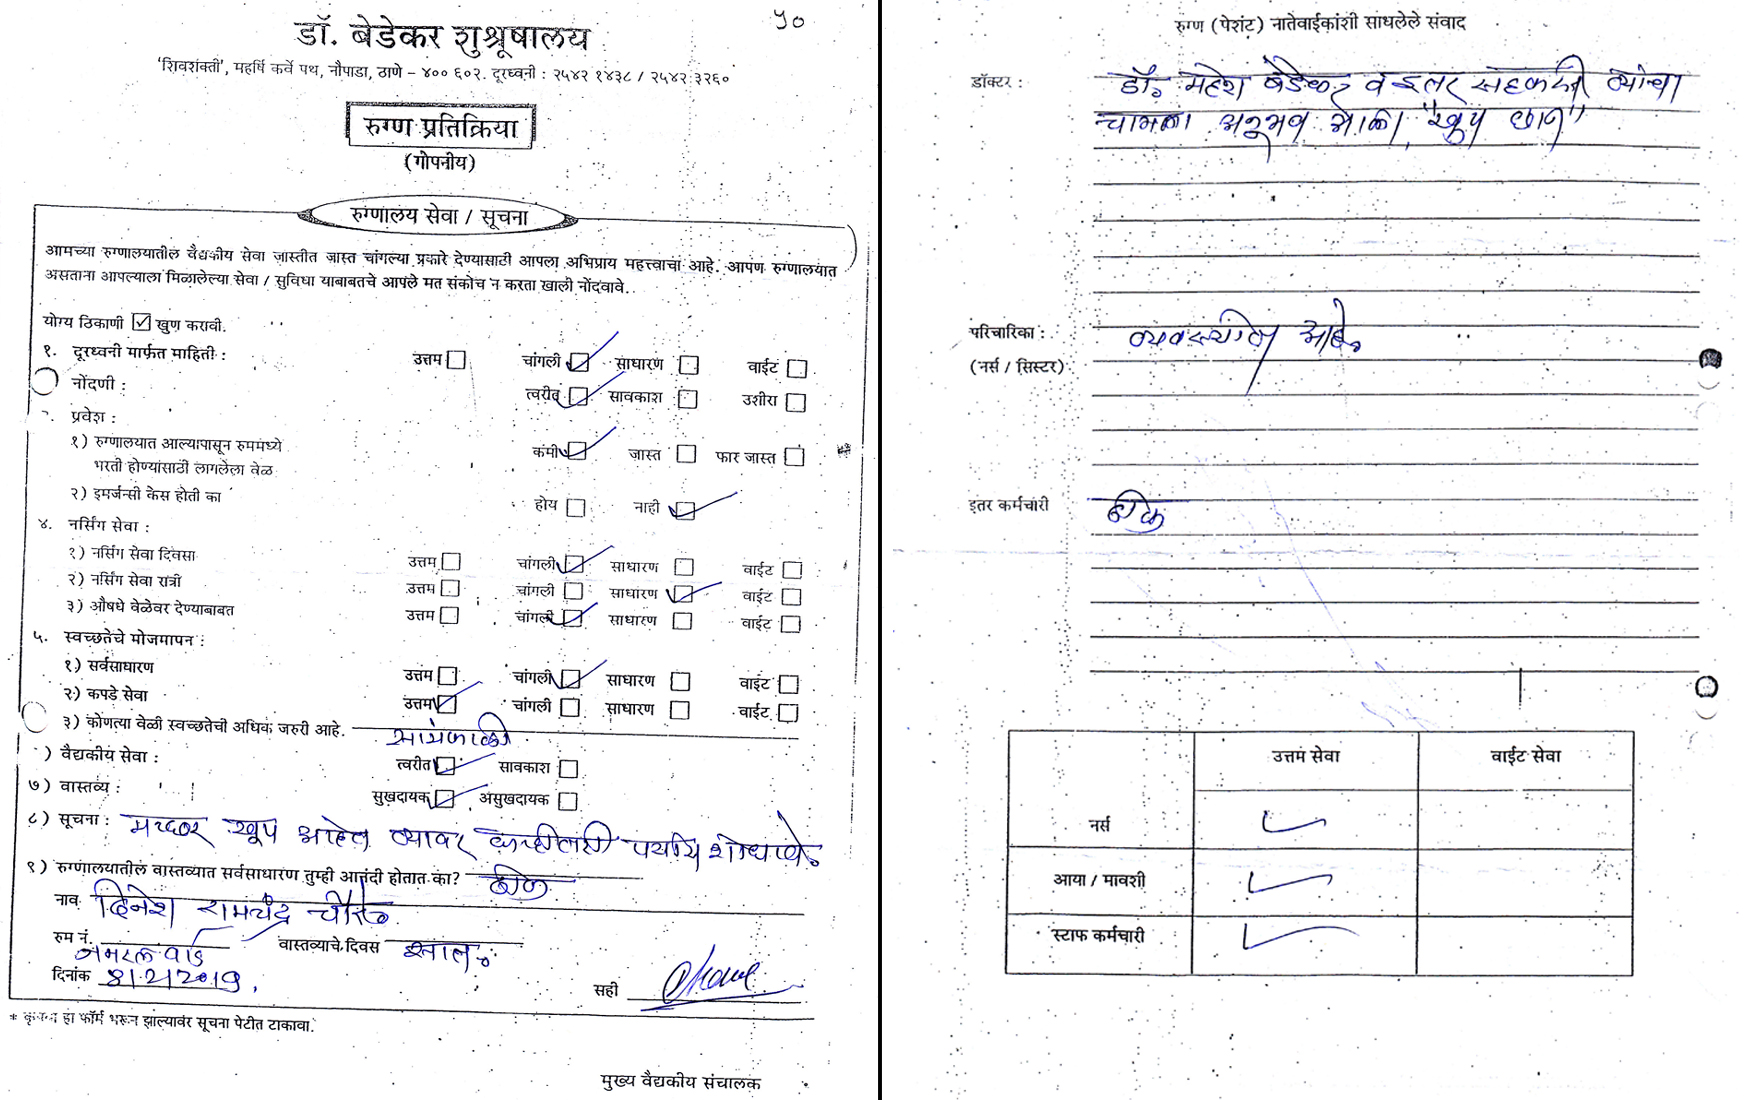 ५०
डॉ. बेडेकर शुश्रूषालय
'शिवशक्ती', महर्षि कर्वे पथ, नौपाडा, ठाणे – ४०० ६०२. दूरध्वनी : २५४२ १४३८ / २५४२ ३२६०
रुग्ण प्रतिक्रिया
(गोपनीय)
रुग्णालय सेवा / सूचना
आमच्या रुग्णालयातील वैद्यकीय सेवा जास्तीत जास्त चांगल्या प्रकारे देण्यासाठी आपला अभिप्राय महत्त्वाचा आहे. आपण रुग्णालयात
असताना आपल्याला मिळालेल्या सेवा / सुविधा याबाबतचे आपले मत संकोच न करता खाली नोंदवावे.
योग्य ठिकाणी ☑ खुण करावी.
१. दूरध्वनी मार्फत माहिती : उत्तम ☐ चांगली ☑ साधारण ☐ वाईट ☐
नोंदणी : त्वरीत ☑ सावकाश ☐ उशीरा ☐
प्रवेश :
१) रुग्णालयात आल्यापासून रुममध्ये
भरती होण्यांसाठी लागलेला वेळ कमी ☑ जास्त ☐ फार जास्त ☐
२) इमर्जन्सी केस होती का होय ☐ नाही ☑
४. नर्सिंग सेवा :
१) नर्सिंग सेवा दिवसा उत्तम ☐ चांगली ☑ साधारण ☐ वाईट ☐
२) नर्सिंग सेवा रात्री उत्तम ☐ चांगली ☐ साधारण ☑ वाईट ☐
३) औषधे वेळेवर देण्याबाबत उत्तम ☐ चांगली ☑ साधारण ☐ वाईट ☐
५. स्वच्छतेचे मोजमापन :
१) सर्वसाधारण उत्तम ☐ चांगली ☑ साधारण ☐ वाईट ☐
२) कपडे सेवा उत्तम ☑ चांगली ☐ साधारण ☐ वाईट ☐
३) कोणत्या वेळी स्वच्छतेची अधिक जरुरी आहे. सायंकाळी
) वैद्यकीय सेवा : त्वरीत ☑ सावकाश ☐
७) वास्तव्य : सुखदायक ☑ असुखदायक ☐
८) सूचना : मच्छर खूप आहेत त्यावर काहीतरी पर्याय शोधावे.
९) रुग्णालयातील वास्तव्यात सर्वसाधारण तुम्ही आनंदी होतात का? ठीक
नाव दिनेश रामचंद्र
रुम नं. जनरल वार्ड वास्तव्याचे दिवस सात.
दिनांक ४।२।२०१७. सही
* कृपया हा फॉर्म भरून झाल्यावर सूचना पेटीत टाकावा.
मुख्य वैद्यकीय संचालक
रुग्ण (पेशंट) नातेवाईकांशी साधलेले संवाद
डॉक्टर : डॉ. महेश बेडेकर व इतर सहकारी त्यांचा
चांगला अनुभव आला, "खुप छान"
परिचारिका : व्यवस्थीत आहे.
(नर्स / सिस्टर)
इतर कर्मचारी ठीक
उत्तम सेवा वाईट सेवा
नर्स ✓
आया / मावशी ✓
स्टाफ कर्मचारी ✓